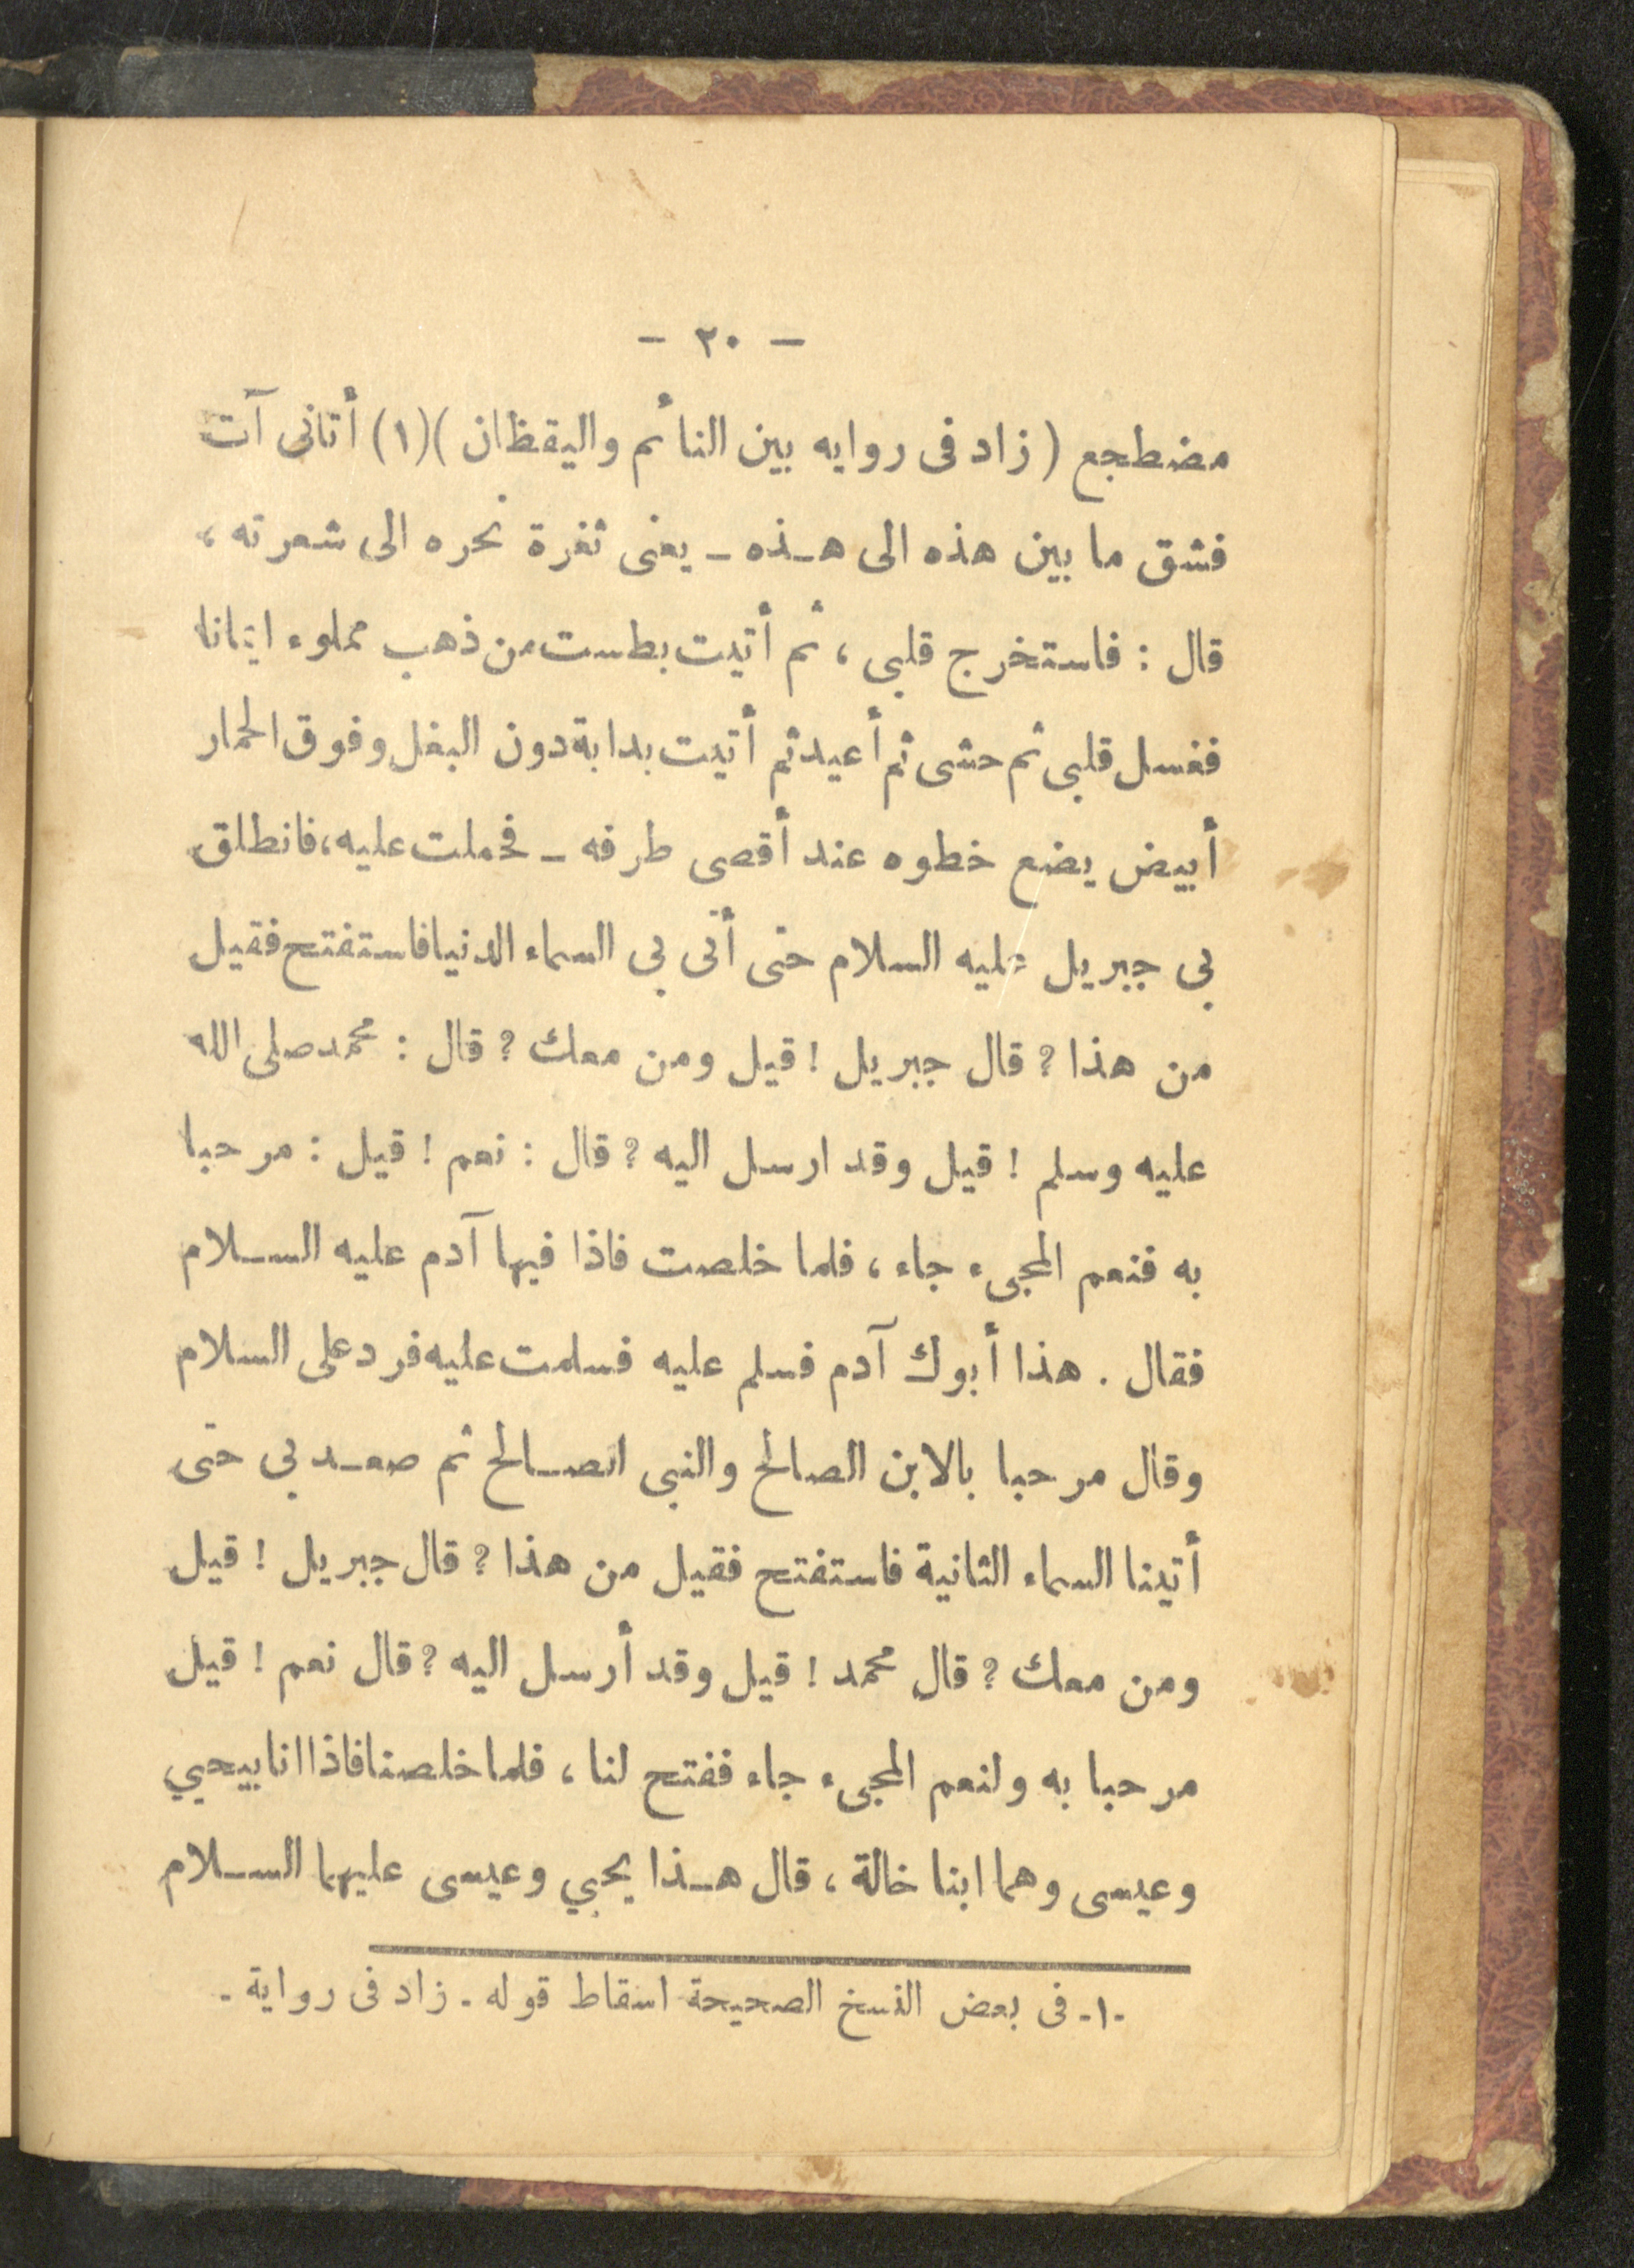 - ٢٠ -
مضطجع ( زاد فى روايه بين النائم واليقظان )(١) أتانى آت
فشق ما بين هذه الى هـذه - يعنى ثغرة نحره الى شعرته ،
قال : فاستخرج قلبى ، ثم أتيت بطست من ذهب مملوء ايمانا
فغسل قلبى ثم حشى ثم أعيد ثم أتيت بدابة دون البغل وفوق الحمار
أبيض يضع خطوه عند أقصى طرفه - فحملت عليه، فانطلق
بى جبريل عليه السلام حتى أتى بى السماء الدنيا فاستفتح فقيل
من هذا ؟ قال جبريل ! قيل ومن معك ؟ قال : محمد صلى الله
عليه وسلم ! قيل وقد ارسل اليه ؟ قال : نعم ! قيل : مرحبا
به فنعم المجىء جاء ، فلما خلصت فاذا فيها آدم عليه الســلام
فقال . هذا أبوك آدم فسلم عليه فسلمت عليه فرد على السلام
وقال مرحبا بالابن الصالح والنبى الصــالح ثم صعـد بى حتى
أتينا السماء الثانية فاستفتح فقيل من هذا ؟ قال جبريل ! قيل
ومن معك ؟ قال محمد ! قيل وقد أرسل اليه ؟ قال نعم ! قيل
مرحبا به ولنعم المجىء جاء ففتح لنا ، فلما خلصنا فاذا انا بيحيي
وعيسى وهما ابنا خالة ، قال هـذا يحيي وعيسى عليهما الســلام
-١- فى بعض النسخ الصحيحة اسقاط قوله - زاد فى رواية -